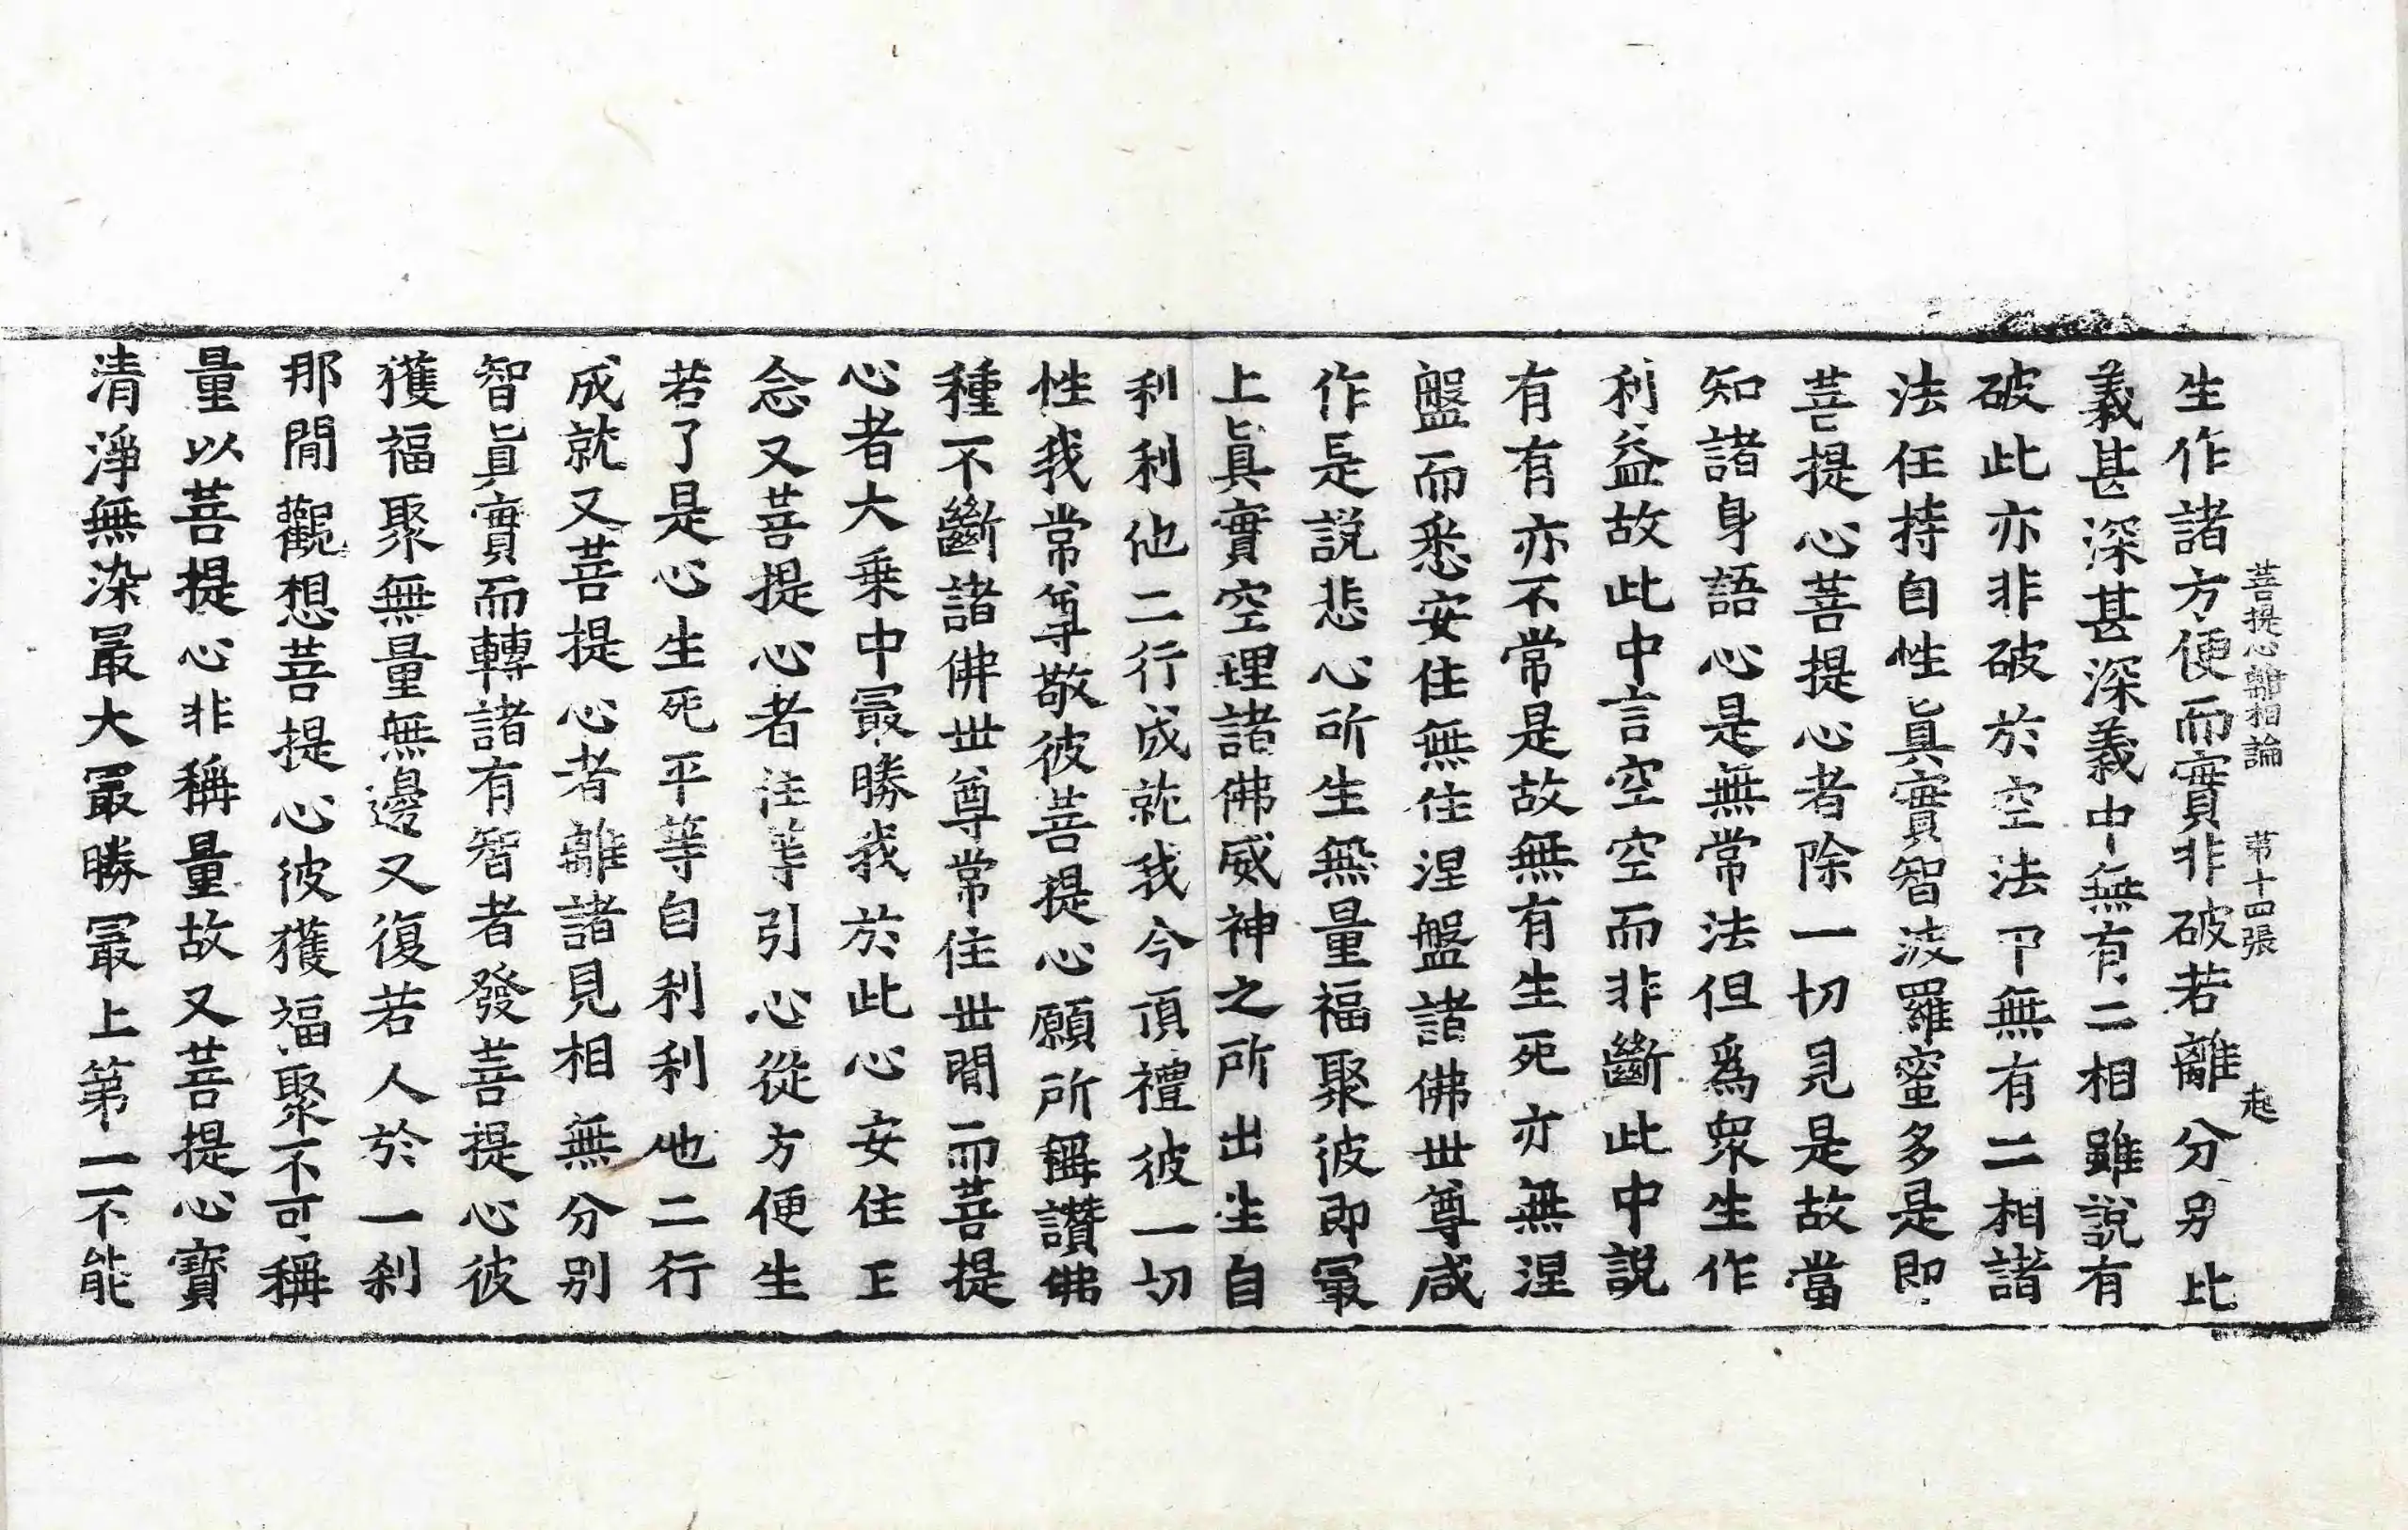 菩提心離相論 第十四張 起
生作諸方便而實非破若離分別比
義甚深甚深義中無有二相雖說有
破此亦非破於空法中無有二相諸
法任持自性眞實智波羅蜜多是即
菩提心菩提心者除一切見是故當
知諸身語心是無常法但爲衆生作
利益故此中言空空而非斷此中說
有有亦不常是故無有生死亦無涅
盤而悉安住無住涅盤諸佛世尊咸
作是說悲心所生無量福聚彼即㝡
上眞實空理諸佛威神之所出生自
利利他二行成就我今頂禮彼一切
性我常尊敬彼菩提心願所稱讚佛
種不斷諸佛世尊常住世間而菩提
心者大乘中㝡勝我於此心安住正
念又菩提心者住等引心從方便生
若了是心生死平等自利利他二行
成就又菩提心者離諸見相無分別
智眞實而轉諸有智者發菩提心彼
獲福聚無量無邊又復若人於一刹
那間觀想菩提心彼獲福聚不可稱
量以菩提心非稱量故又菩提心寶
清淨無染㝡大㝡勝㝡上第一不能